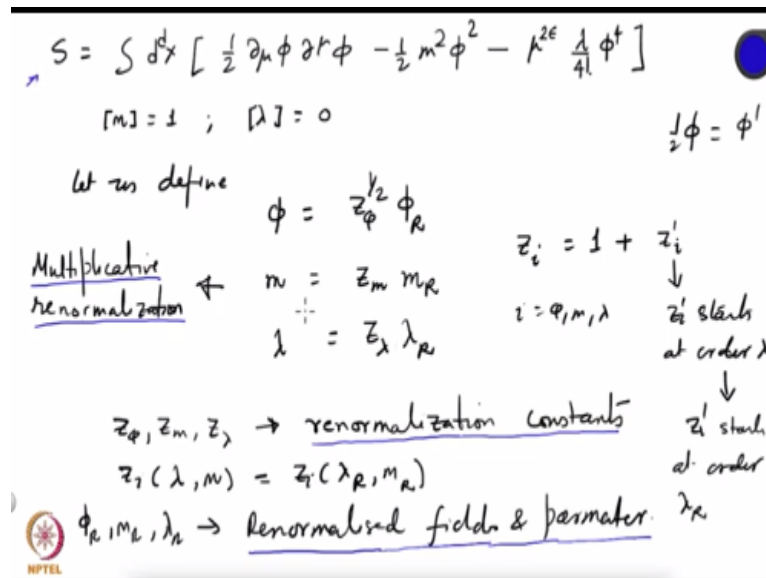 S = ∫ d^d x [ 1/2 ∂_μ φ ∂^μ φ - 1/2 m² φ² - μ^{2ε} λ/4! φ⁴ ]
[m] = 1 ; [λ] = 0
1/2 φ = φ'
Let us define
φ = Z_φ^{1/2} φ_R
Multiplicative
renormalization ← m = Z_m m_R
λ = Z_λ λ_R
Z_i = 1 + Z_i'
i = φ, m, λ
↓
Z_i' starts
at order λ
↓
Z_i' start
at order
λ_R
Z_φ, Z_m, Z_λ → renormalization constants
Z_i (λ, m) = Z_i (λ_R, m_R)
φ_R, m_R, λ_R → Renormalised fields & parmater.
NPTEL